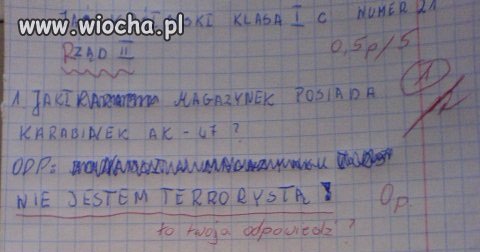 www.wiocha.pl
KLASA I C NUMER 21
RZĄD II
0,5p/5
1. JAKI MAGAZYNEK POSIADA
KARABINEK AK-47?
ODP:
NIE JESTEM TERRORYSTĄ!
0p.
to twoja odpowiedź?